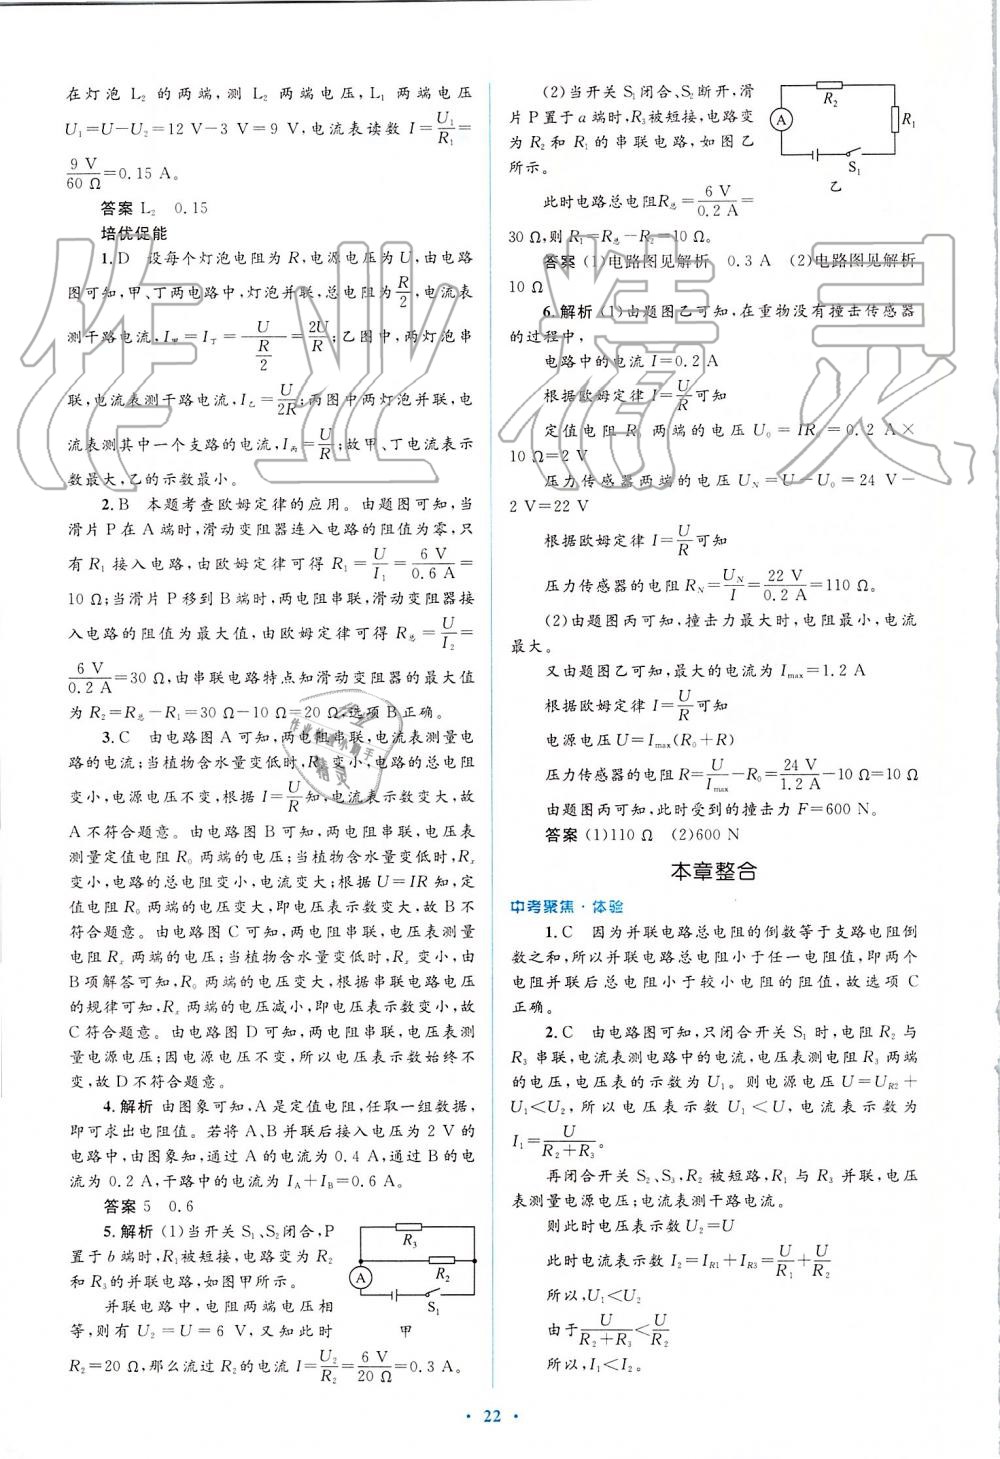 在灯泡 L₂ 的两端,测 L₂ 两端电压,L₁ 两端电压
U₁=U-U₂=12 V-3 V=9 V,电流表读数 I=U₁/R₁=
9 V/60 Ω=0.15 A。
答案 L₂ 0.15
培优促能
1.D 设每个灯泡电阻为 R,电源电压为 U,由电路
图可知,甲、丁两电路中,灯泡并联,总电阻为R/2,电流表
测干路电流,I甲=I丁=U/(R/2)=2U/R;乙图中,两灯泡串
联,电流表测干路电流,I乙=U/2R;丙图中两灯泡并联,电
流表测其中一个支路的电流,I丙=U/R;故甲、丁电流表示
数最大,乙的示数最小。
2.B 本题考查欧姆定律的应用。由题图可知,当
滑片 P 在 A 端时,滑动变阻器连入电路的阻值为零,只
有 R₁ 接入电路,由欧姆定律可得 R₁=U/I₁=6 V/0.6 A=
10 Ω;当滑片 P 移到 B 端时,两电阻串联,滑动变阻器接
入电路的阻值为最大值,由欧姆定律可得 R总=U/I₂=
6 V/0.2 A=30 Ω,由串联电路特点知滑动变阻器的最大值
为 R₂=R总-R₁=30 Ω-10 Ω=20 Ω,选项 B 正确。
3.C 由电路图 A 可知,两电阻串联,电流表测量电
路的电流;当植物含水量变低时,Rₓ 变小,电路的总电阻
变小,电源电压不变,根据 I=U/R知,电流表示数变大,故
A 不符合题意。由电路图 B 可知,两电阻串联,电压表
测量定值电阻 R₀ 两端的电压;当植物含水量变低时,Rₓ
变小,电路的总电阻变小,电流变大;根据 U=IR 知,定
值电阻 R₀ 两端的电压变大,即电压表示数变大,故 B 不
符合题意。由电路图 C 可知,两电阻串联,电压表测量
电阻 Rₓ 两端的电压;当植物含水量变低时,Rₓ 变小,由
B 项解答可知,R₀ 两端的电压变大,根据串联电路电压
的规律可知,Rₓ 两端的电压减小,即电压表示数变小,故
C 符合题意。由电路图 D 可知,两电阻串联,电压表测
量电源电压;因电源电压不变,所以电压表示数始终不
变,故 D 不符合题意。
4.解析 由图象可知,A 是定值电阻,任取一组数据,
即可求出电阻值。若将 A、B 并联后接入电压为 2 V 的
电路中,由图象知,通过 A 的电流为 0.4 A,通过 B 的电
流为 0.2 A,干路中的电流为 I_A+I_B=0.6 A。
答案 5 0.6
5.解析 (1)当开关 S₁、S₂闭合,P
置于 b 端时,R₁被短接,电路变为 R₂
和 R₃的并联电路,如图甲所示。
并联电路中,电阻两端电压相
等,则有 U₂=U=6 V,又知此时
R₂=20 Ω,那么流过 R₂的电流 I=U₂/R₂=6 V/20 Ω=0.3 A。
R₃
R₂
A
S₁
甲
(2)当开关 S₁闭合、S₂断开,滑
片 P 置于 a 端时,R₃被短接,电路变
为 R₂ 和 R₁ 的串联电路,如图乙
所示。
此时电路总电阻R总=6 V/0.2 A=
30 Ω,则 R₁=R总-R₂=10 Ω。
R₂
A
R₁
S₁
乙
答案 (1)电路图见解析 0.3 A (2)电路图见解析
10 Ω
6.解析 (1)由题图乙可知,在重物没有撞击传感器
的过程中,
电路中的电流 I=0.2 A
根据欧姆定律 I=U/R可知
定值电阻 R₀ 两端的电压 U₀=IR₀=0.2 A×
10 Ω=2 V
压力传感器两端的电压 U_N=U-U₀=24 V-
2 V=22 V
根据欧姆定律 I=U/R可知
压力传感器的电阻 R_N=U_N/I=22 V/0.2 A=110 Ω。
(2)由题图丙可知,撞击力最大时,电阻最小,电流
最大。
又由题图乙可知,最大的电流为 Imax=1.2 A
根据欧姆定律 I=U/R可知
电源电压 U=Imax(R₀+R)
压力传感器的电阻 R=U/Imax-R₀=24 V/1.2 A-10 Ω=10 Ω
由题图丙可知,此时受到的撞击力 F=600 N。
答案 (1)110 Ω (2)600 N
本章整合
中考聚焦·体验
1.C 因为并联电路总电阻的倒数等于支路电阻倒
数之和,所以并联电路总电阻小于任一电阻值,即两个
电阻并联后总电阻小于较小电阻的阻值,故选项 C
正确。
2.C 由电路图可知,只闭合开关 S₁ 时,电阻 R₂ 与
R₃ 串联,电流表测电路中的电流,电压表测电阻 R₃ 两端
的电压,电压表的示数为 U₁。则电源电压 U=U_R2+
U₁<U₂,所以电压表示数 U₁<U,电流表示数为
I₁=U/(R₂+R₃)。
再闭合开关 S₂、S₃,R₂ 被短路,R₁ 与 R₃ 并联,电压
表测量电源电压;电流表测干路电流。
则此时电压表示数 U₂=U
此时电流表示数 I₂=I_R1+I_R3=U/R₁+U/R₃
所以,U₁<U₂
由于U/(R₂+R₃)<U/R₃
所以,I₁<I₂。
·22·
作业精灵